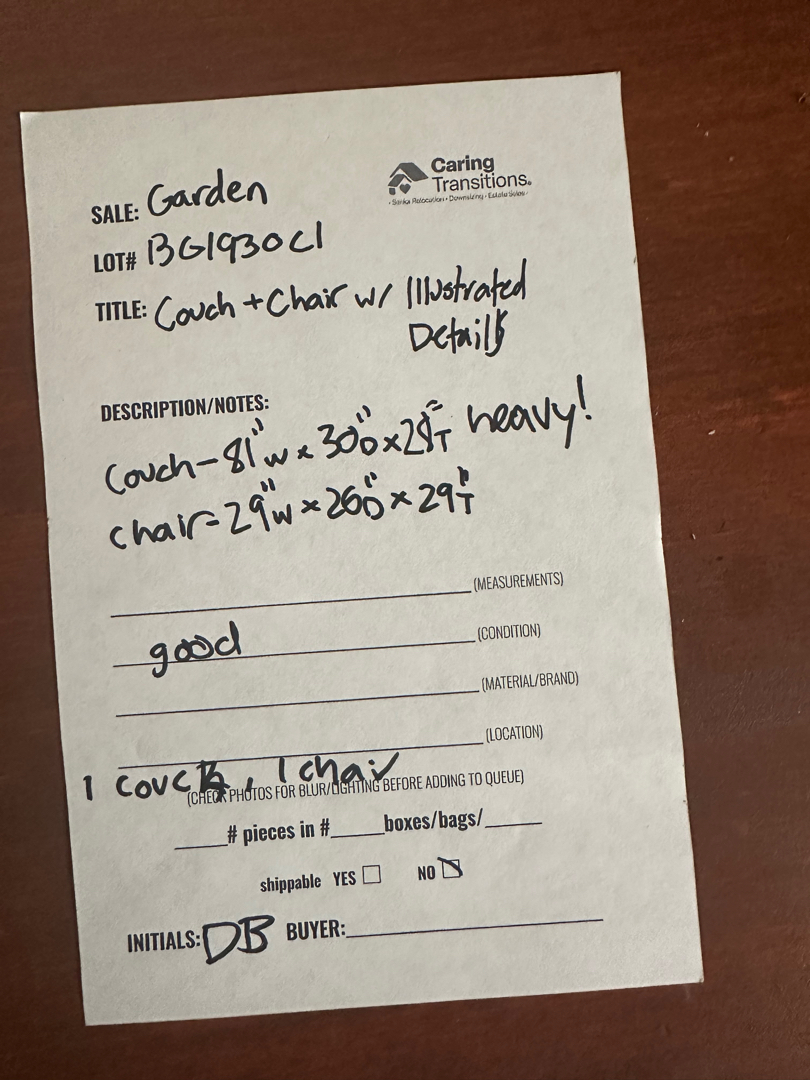 Caring
Transitions.
· Senior Relocation · Downsizing · Estate Sales ·
SALE: Garden
LOT# BG1930C1
TITLE: Couch + Chair w/ Illustrated
Details
DESCRIPTION/NOTES:
Couch - 81"W x 30"D x 28"T heavy!
chair = 29"W x 26"D x 29"T
(MEASUREMENTS)
good (CONDITION)
(MATERIAL/BRAND)
(LOCATION)
1 couch, 1 chair
(CHECK PHOTOS FOR BLUR/LIGHTING BEFORE ADDING TO QUEUE)
____# pieces in #____boxes/bags/____
shippable YES ☐ NO ☑
INITIALS: DB BUYER: